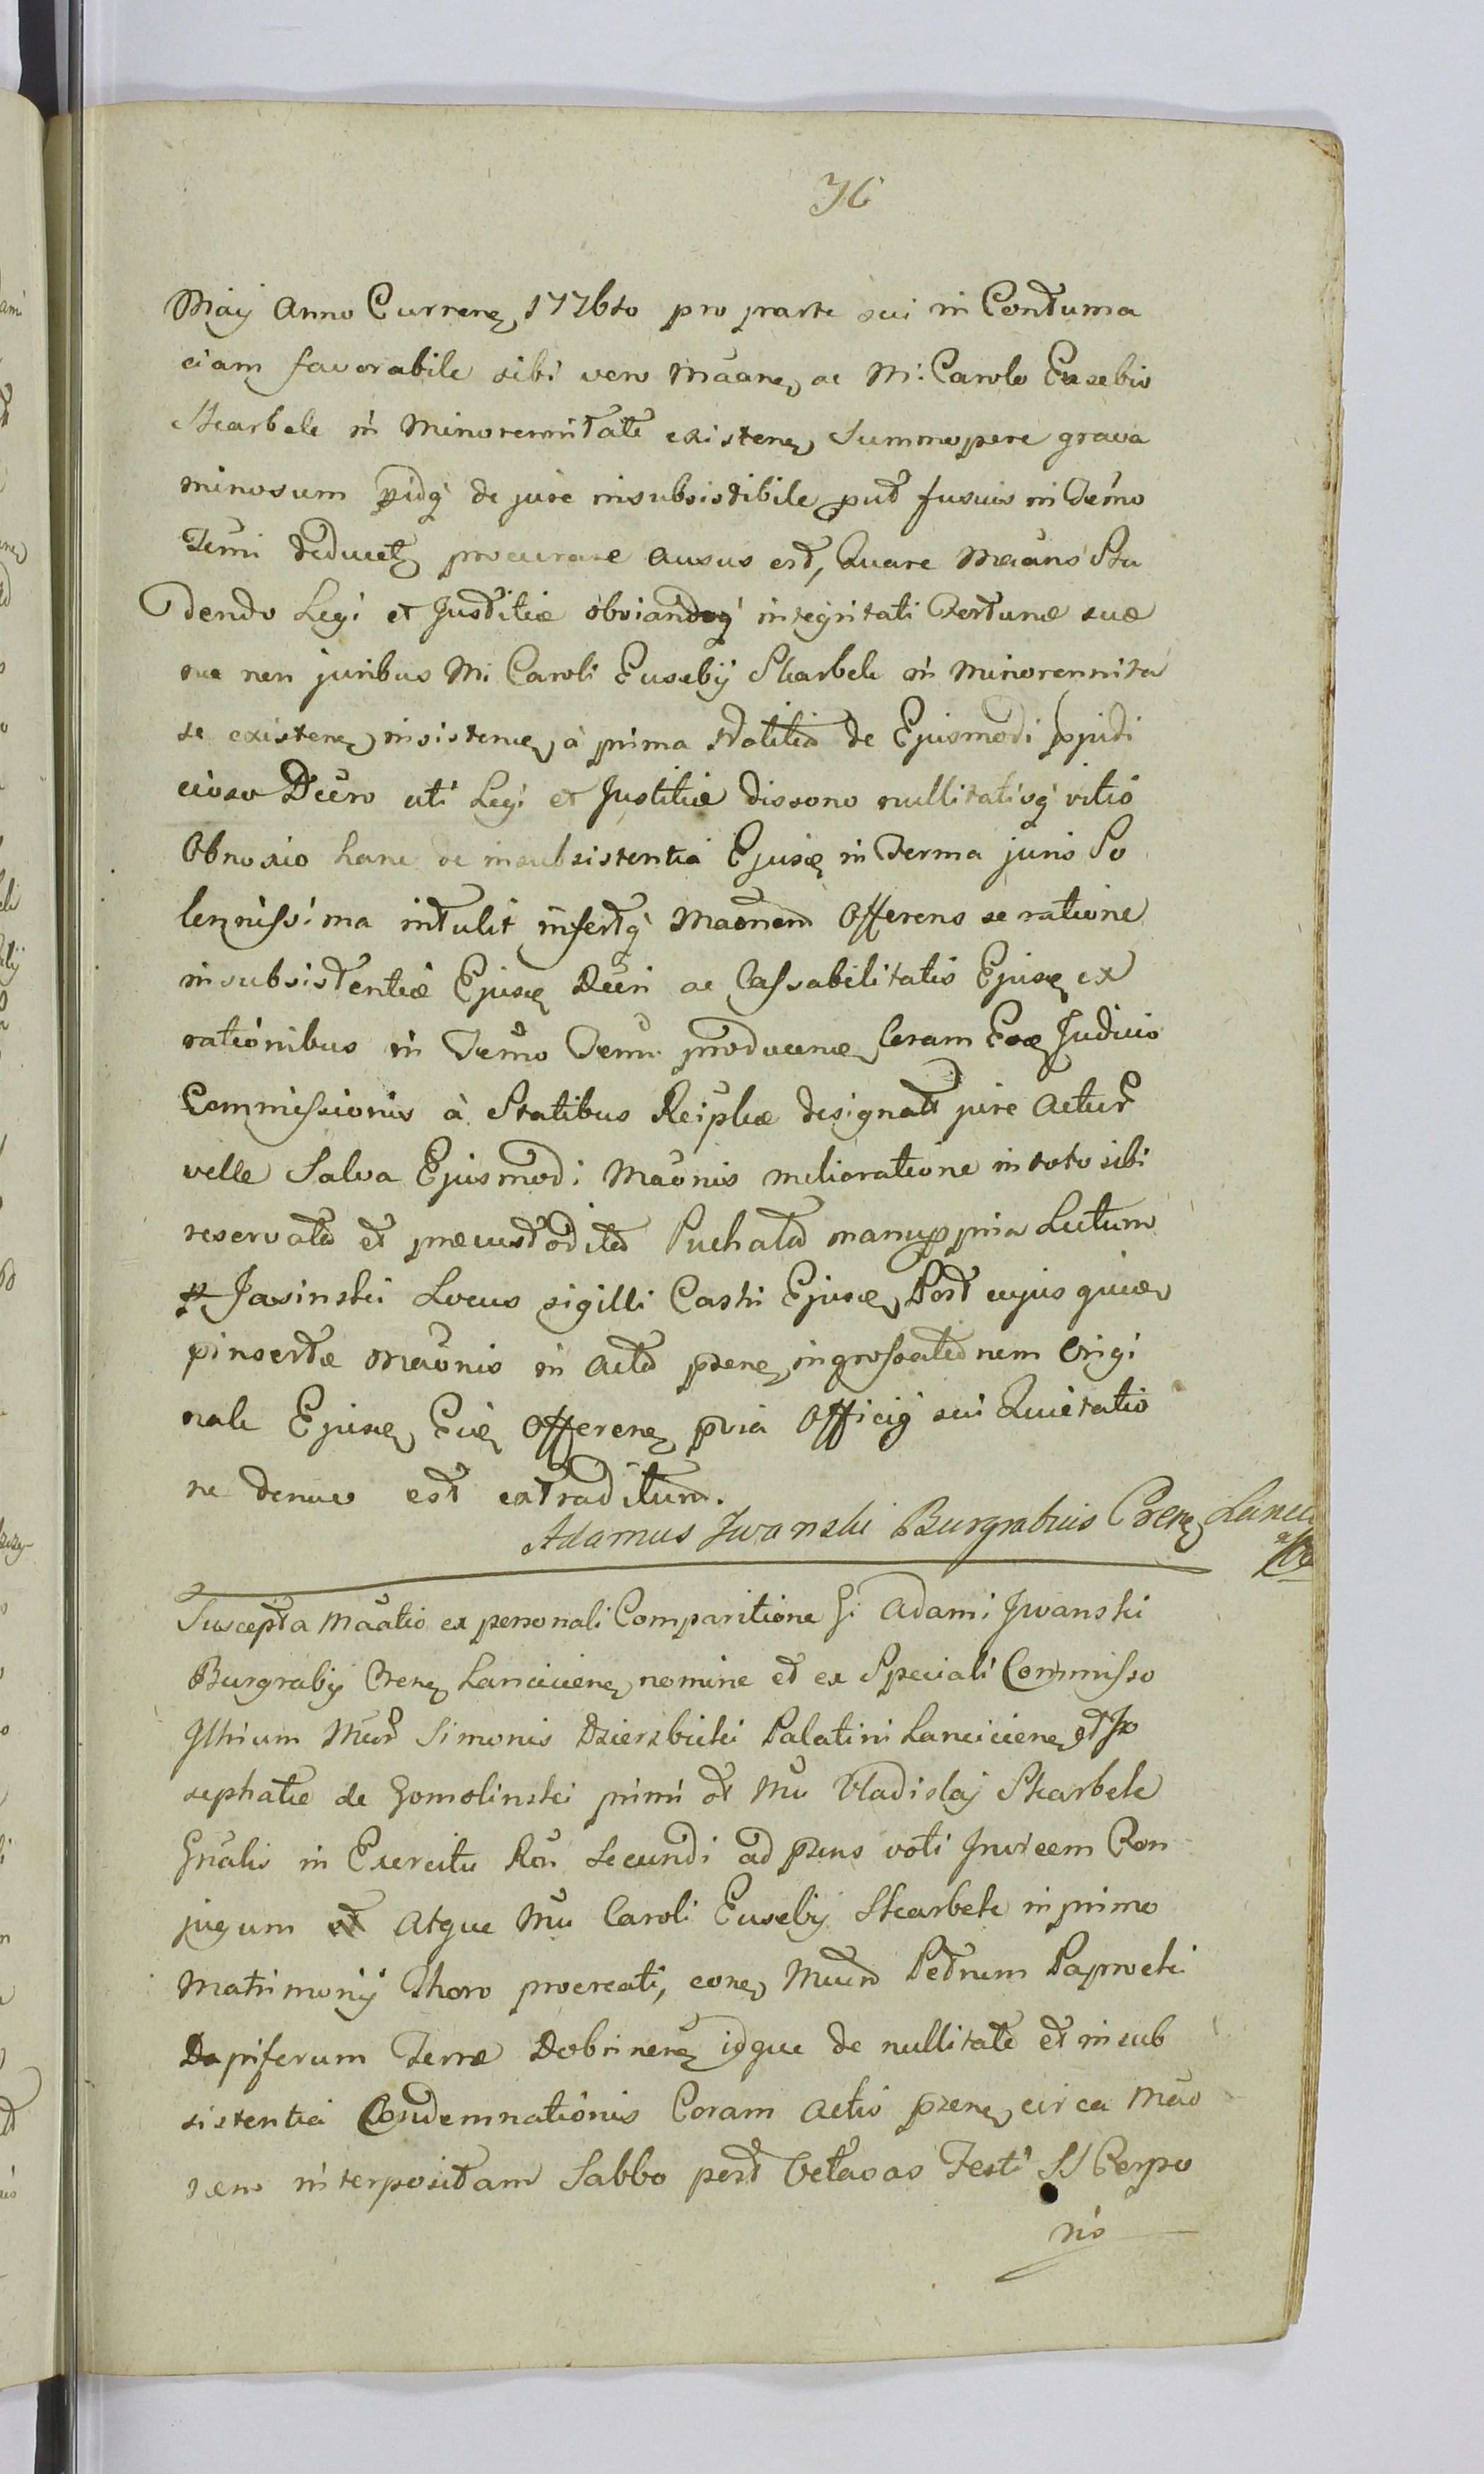 76
Maij Anno Curren 1776to pro parte sui in Contuma
ciam favorabile sibi vero Maane ac M: Carolo Eusebio
Skarbek in Minorennitate existen Summopere grava
minosum pidq de jure insubsistibile put fusius in Termo
Termi deducet procurare ausus est, Quare Maans Stu
dendo Legi et Justitiæ obviandoq integritati Fortunæ suæ
nec non juribus M: Caroli Eusebij Skarbek in Minorennita
te existen insisten à prima Notitia de Ejusmodi ppjudi
cioso Decro uti Legi et Justitiæ dissono nullitatisq vitio
Obnoxio hanc de insubsistentia Ejusd in Forma juris So
lennissima intulit infertq Maonem Offerens se ratione
insubsistentiæ Ejusd Decri ac Cassabilitatis Ejusd ex
rationibus in Termo Termi producen Coram Eod Judicio
Commissionis à Statibus Reiplicæ designati jure Actur
velle Salva Ejusmodi Maonis melioratione in toto sibi
reservata et præcustodita Puchala manu ppria Lectum
p Jasinski Locus sigilli Castri Ejusd Post cujus quid
pinsertæ Maonis in Acta psen ingrossationem Origi
nale Ejusd Eid Offeren pvia Officij sui Quietatio
ne denuo est extraditum.
Adamus Iwanski Burgrabius Cren Lanci
Suscepta Maatio ex personali Comparitione G: Adami Iwanski
Burgrabij Cren Lancicien nomine et ex Speciali Commisso
Illrium Mcor Simonis Dzierzbicki Palatini Lancicien et Jo
sephatæ de Gomolinski primi et Mci Vladislaj Skarbek
Gnalis in Exercitu Rni Secundi ad psens voti Invicem Con
jugum Atque Mci Caroli Eusebij Skarbek in primo
Matrimonij Thoro procreati, con Mcum Petrum Paprocki
Dapiferum Terræ Dobrinen idque de nullitate et insub
sistentia Condemnationis Coram Actis psen circa Mao
nem interpositam Sabbo post Octavas Festi SS Corpo
ris